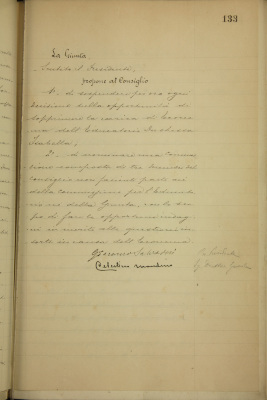 133
La Giunta,
Sentito il Presidente,
propone al Consiglio
1º. di sospendere per ora ogni
decisione sulla opportunità di
sopprimere la carica di Econo
mo dell'Educatorio Duchessa
Isabella;
2º. di nominare una Commis
sione composta di tre membri del
Consiglio non facenti parte nè
della Commissione per l'Educato
rio nè della Giunta, con lo sco
po di fare le opportune indagi
ni in merito alle
sorte in quanto dell'Economo.